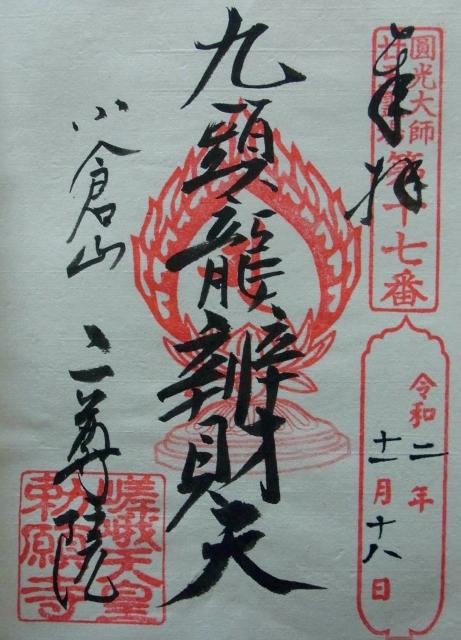 圓光大師
廿五霊場
第十七番
奉拝
令和二年
十一月十八日
九頭龍辨財天
小倉山
二尊院
嵯峨天皇
勅願寺